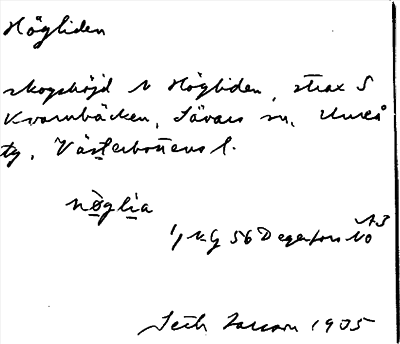 Högliden
skogshöjd N Högliden, strax S
Kvarnbäcken, Sävars sn, Umeå
tg, Västerbottens l.
höglia
1/ k.g 56 Degerfors NO
Seth Larsson 1935